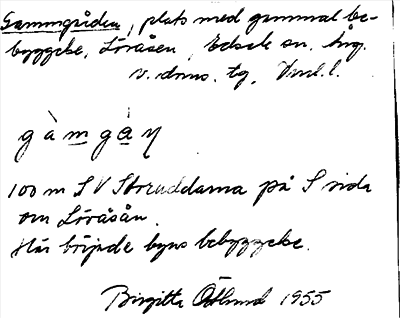 Gammgården, plats med gammal be-
byggelse, Lövåsen, Edsele sn. Ång.
v. doms. tg.
gàmgàɳ
100 m SV Storuddarna på S sida
om Lövåsån.
Här började byns bebyggelse.
Birgitta Östlund 1955